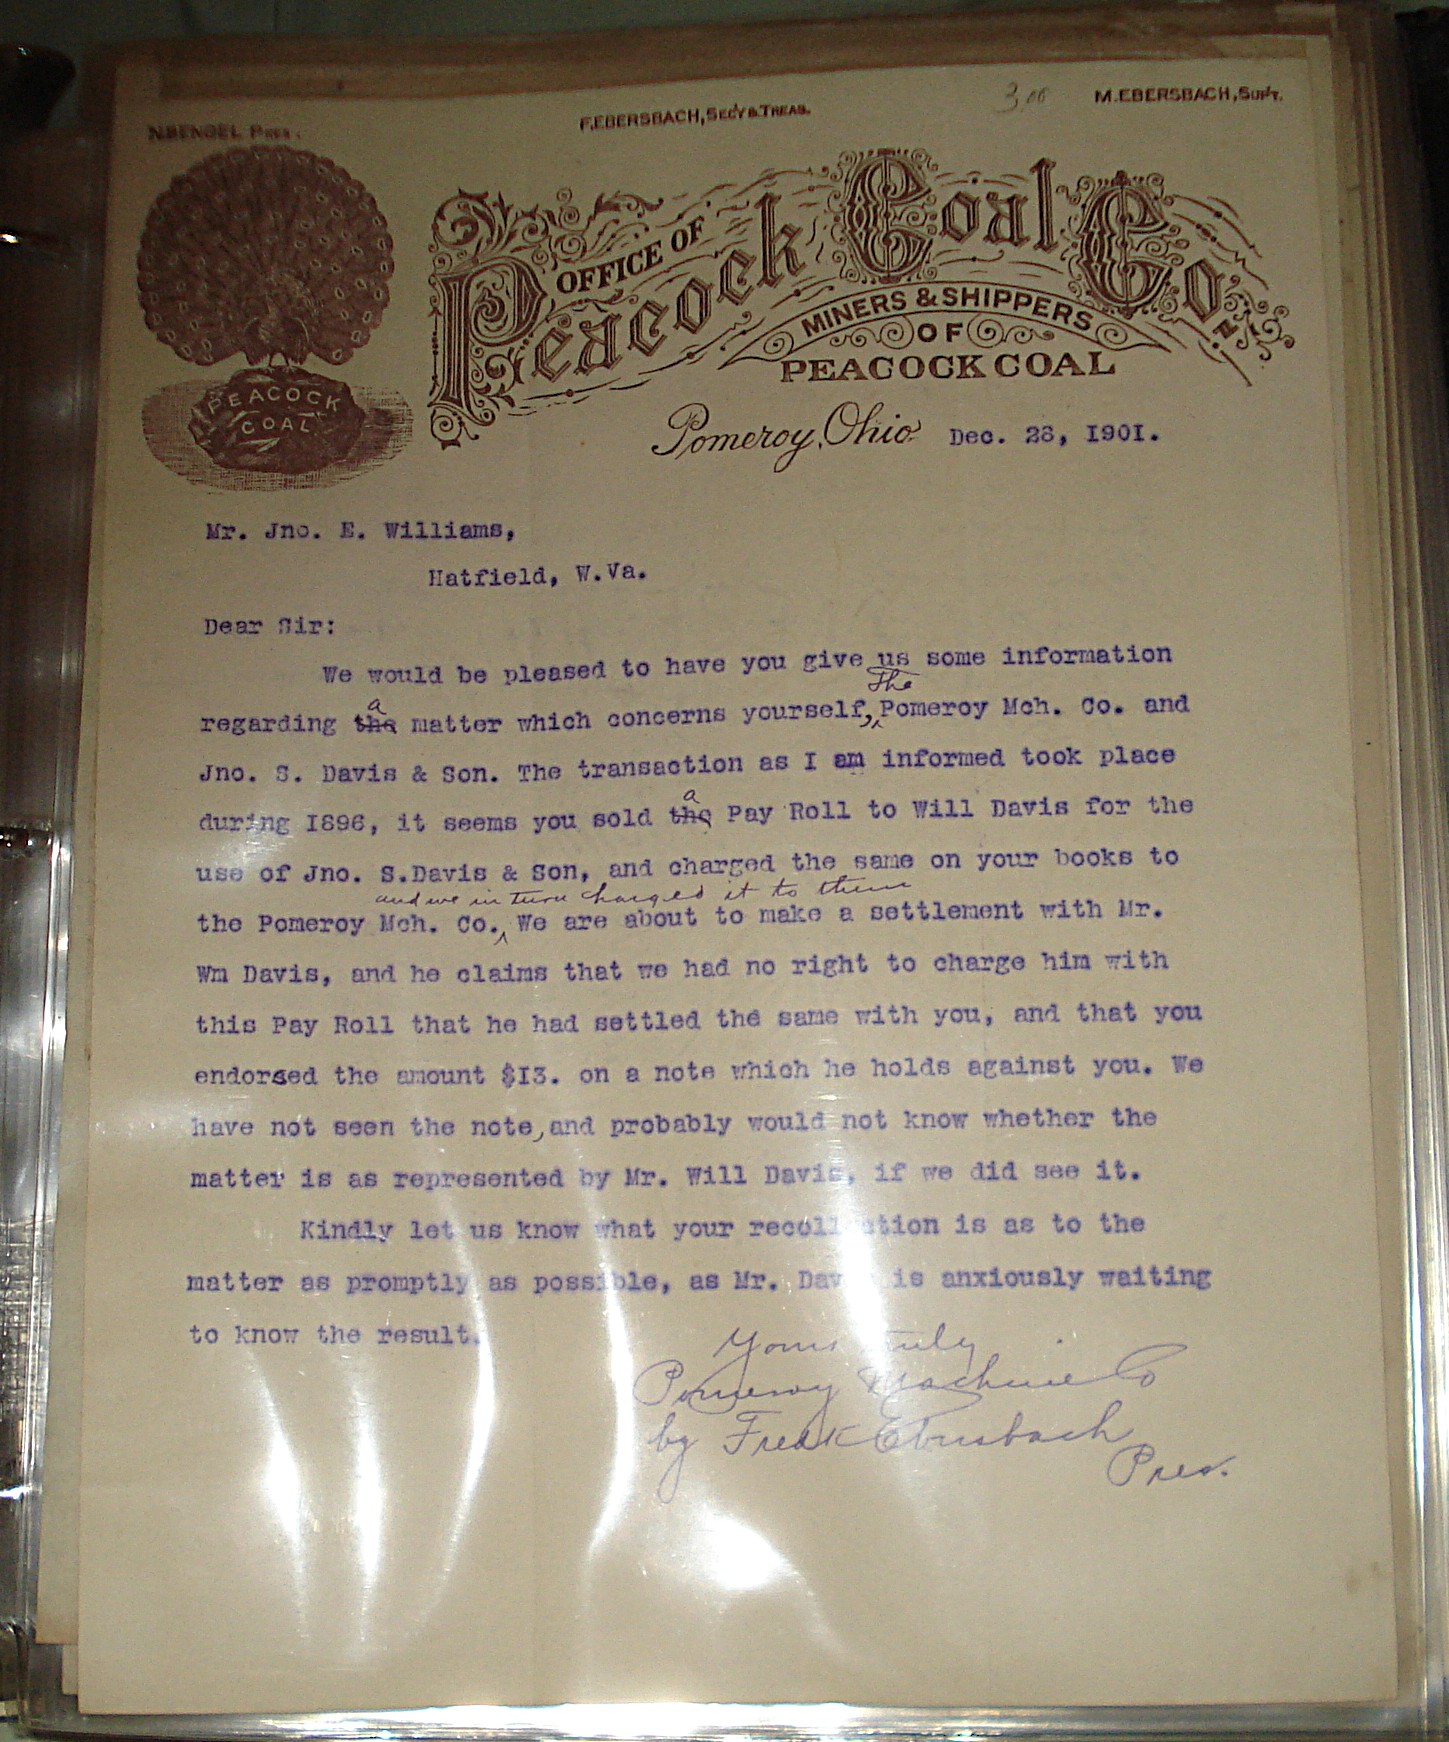 N.BENGEL PRES.
F.EBERSBACH, SEC'Y & TREAS.
3 00
M.EBERSBACH, SUP'T.
OFFICE OF
Peacock Coal Co.
MINERS & SHIPPERS
OF
PEACOCK COAL
PEACOCK
COAL
Pomeroy, Ohio Dec. 28, 1901.
Mr. Jno. E. Williams,
Hatfield, W.Va.
Dear Sir:
We would be pleased to have you give us some information
a The
regarding the matter which concerns yourself, Pomeroy Mch. Co. and
Jno. S. Davis & Son. The transaction as I am informed took place
a
during 1896, it seems you sold the Pay Roll to Will Davis for the
use of Jno. S.Davis & Son, and charged the same on your books to
and we in turn charged it to them
the Pomeroy Mch. Co. We are about to make a settlement with Mr.
Wm Davis, and he claims that we had no right to charge him with
this Pay Roll that he had settled the same with you, and that you
endorsed the amount $13. on a note which he holds against you. We
have not seen the note, and probably would not know whether the
matter is as represented by Mr. Will Davis, if we did see it.
Kindly let us know what your recollection is as to the
matter as promptly as possible, as Mr. Davis is anxiously waiting
to know the result.
Yours truly
Pomeroy Machine Co
by Fred K Ebersbach
Pres.